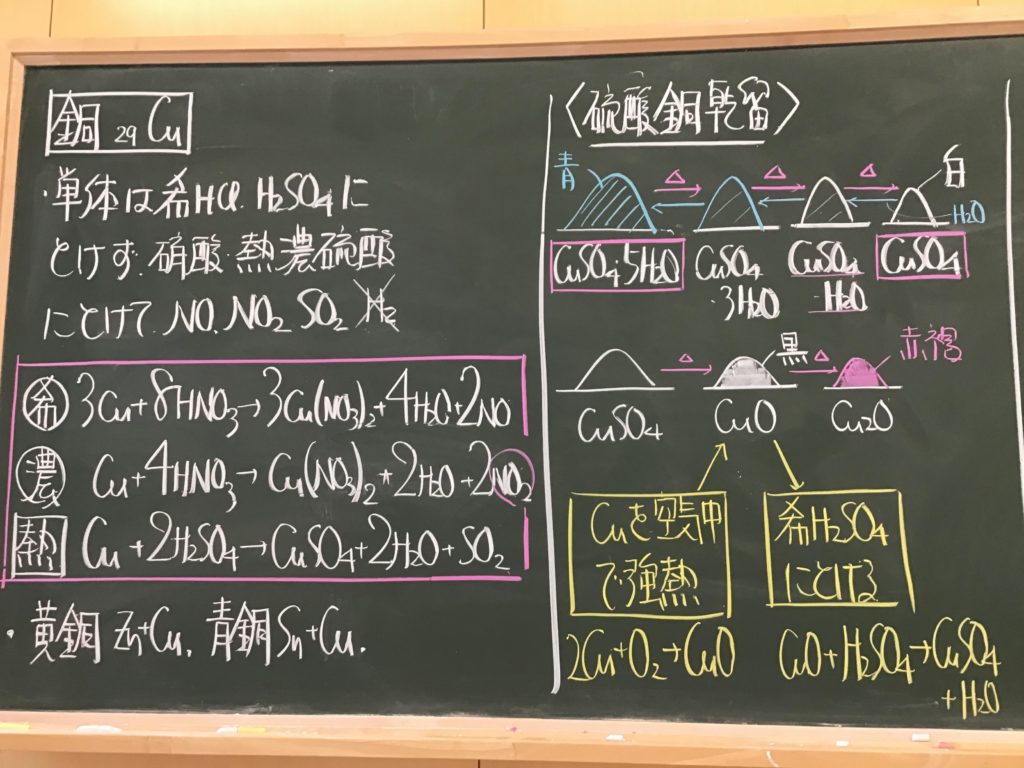 銅 29Cu
・単体は希HCl. H2SO4に
とけず. 硝酸. 熱濃硫酸
にとけて. NO. NO2 SO2 H2
希 3Cu+8HNO3→3Cu(NO3)2+4H2O+2NO
濃 Cu+4HNO3→Cu(NO3)2+2H2O+2NO2
熱 Cu+2H2SO4→CuSO4+2H2O+SO2
・黄銅 Zn+Cu. 青銅 Sn+Cu.
〈硫酸銅乾留〉
青 △ △ △ 白
H2O
CuSO4・5H2O CuSO4 CuSO4 CuSO4
・3H2O ・H2O
△ 黒 △ 赤褐
CuSO4 CuO Cu2O
Cuを空気中
で強熱
2Cu+O2→CuO
希H2SO4
にとける
CuO+H2SO4→CuSO4
+H2O